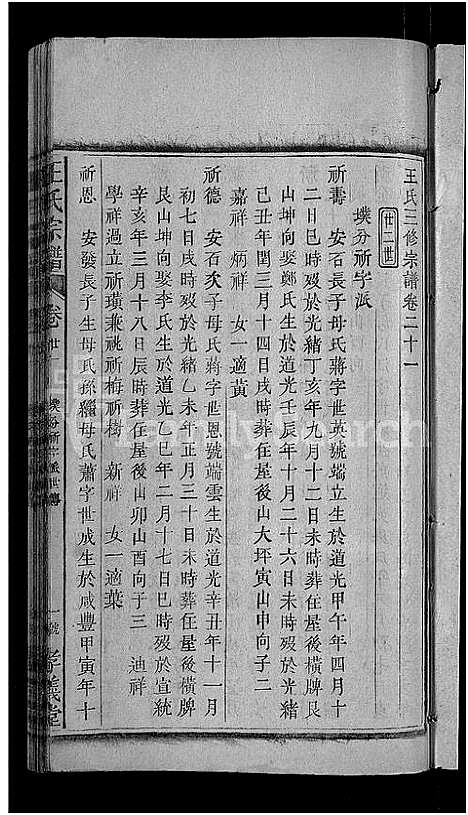 王氏三修宗譜卷二十一
廿二世
墣分祈字派
祈壽　安石長子母氏蔣字世英號端立生於道光甲午年四月十
二日巳時歿於光緒丁亥年九月十二日未時葬在屋後橫牌艮
山坤向娶鄭氏生於道光壬辰年十月二十六日未時歿於光緒
己丑年閏三月十四日戌時葬在屋後山大坪寅山申向子二
嘉祥　炳祥　女一適黃
祈德　安石次子母氏蔣字世恩號端雲生於道光辛丑年十一月
初七日歿於光緒乙未年正月三十日未時葬在屋後山橫牌
艮山坤向娶李氏生於道光乙巳年二月十七日巳時歿於宣統
辛亥年三月十八日辰時葬在屋後山卯山酉向子三　迪祥
學祥過立祈璜兼祧祈梅祈樹　新祥　女一適葉
祈恩　安發長子生母氏孫繼母氏蕭字世成生於咸豐甲寅年十
王氏宗譜　卷廿一　墣分祈字派世傳　一號　孝義堂
FamilySearch